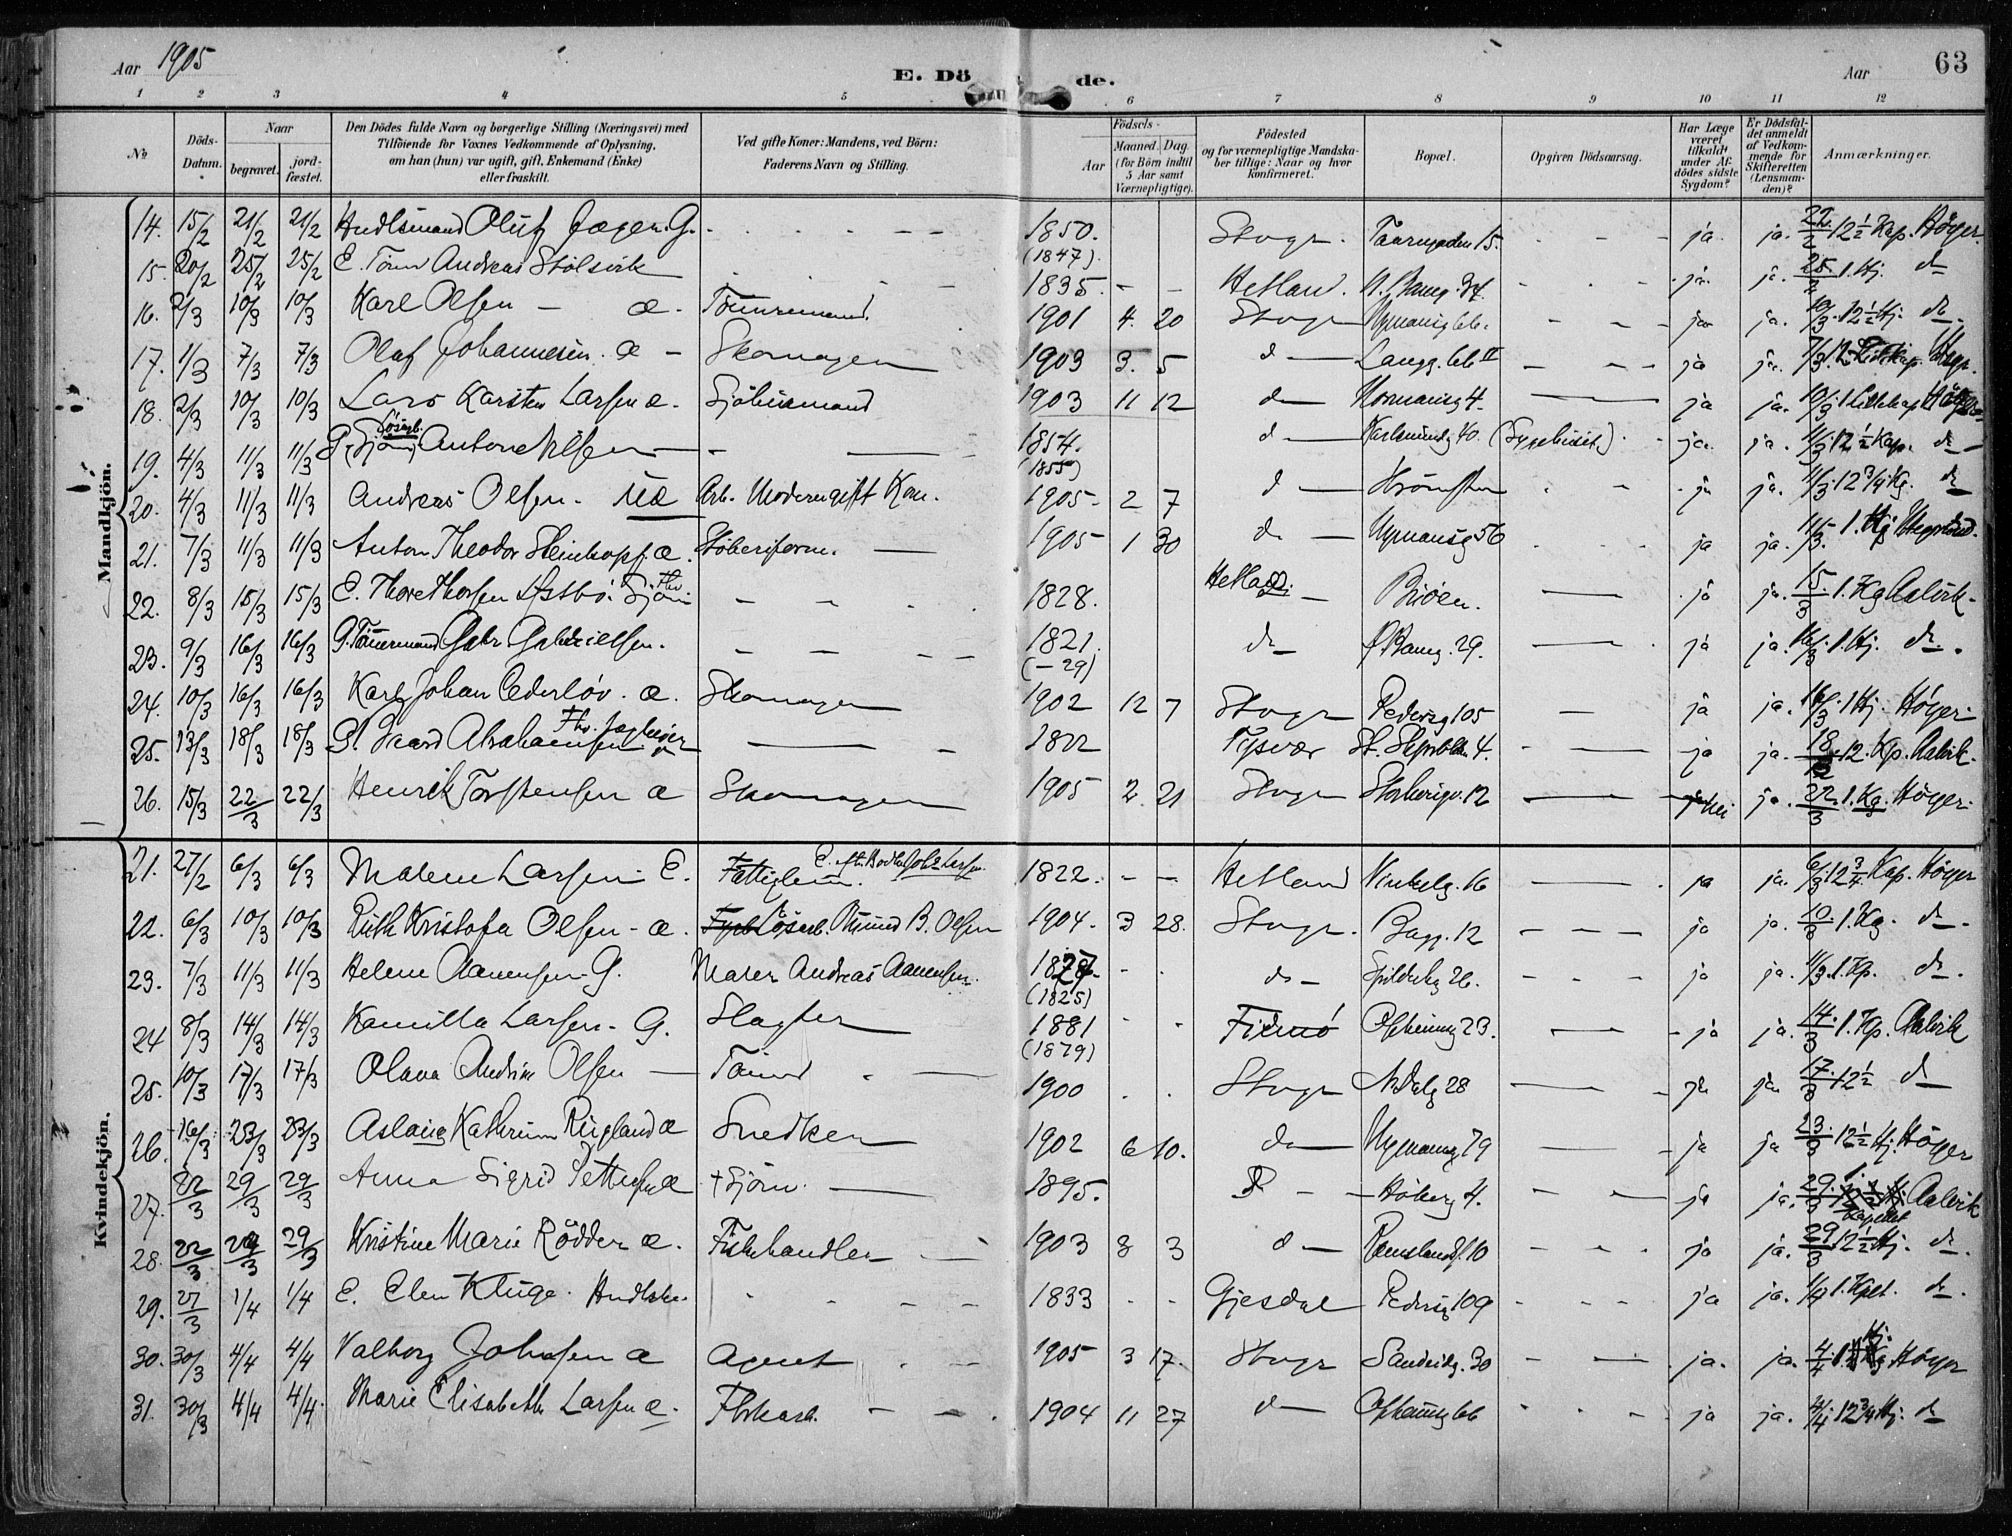 Aar 1905
E. Dö de.
Aar
63
1 2 3 4 5 6 7 8 9 10 11 12
No
Döds-Datum.
Naar
begravet.
jord-fæstet.
Den Dödes fulde Navn og borgerlige Stilling (Næringsvei) med
Tilföiende for Voxnes Vedkommende af Oplysning,
om han (hun) var ugift, gift, Enkemand (Enke)
eller fraskilt.
Ved gifte Koner: Mandens, ved Börn:
Faderens Navn og Stilling.
Födsels-
Aar
Maaned. Dag.
(for Börn indtil
5 Aar samt
Værnepligtige).
Födested
og for værnepligtige Mandska-
ber tillige: Naar og hvor
konfirmeret.
Bopæl.
Opgiven Dödsaarsag.
Har Læge
været
tilkaldt
under Af-
dödes sidste
Sygdom?
Er Dödsfal-
det anmeldt
af Vedkom-
mende for
Skifteretten
(Lensman-
den)?
Anmærkninger.
Mandkjön.
14. 15/2 21/2 21/2 Handlsmand Oluf G. 1850. (1847) Stvgr. 15. ja. ja. 22/2 12 1/2 Kap. Höyer.
15. 20/2 25/2 25/2 E. Tömm Andreas Stölsvik 1835. Hetland. 34. ja. ja. 25/2 1. Hj. do
16. 2/3 10/3 10/3 Karl Olsen æ. Tömmermand. 1901 4. 20 Stvgr Nymansg 66. ja ja. 10/3 12 1/2 Hj. do
17. 1/3 7/3 7/3 Olaf Johannesen. æ Skomager 1903 3. 5 do Langg. 66 II ja ja. 7/3
18. 2/3 10/3 10/3 Lars Karsten Larsen æ. Sjöhusmand 1903 11 12 do Normansg 4. ja ja. 10/3 1 Lillekap. Höyer
19. 4/3 11/3 11/3 G. Sjöm. Lösarb. Anton Nilsen 1854. (1855) do Karlsmindeg 40. (Sygehuset) ja. ja. 11/3 12 1/2 Kap. do
20. 4/3 11/3 11/3 Andreas Olsen. Uæ Arb. Moderen gift Kon. 1905 2 7 do ja ja. 11/3 12 3/4 Kg. do
21. 7/3 11/3 11/3 Anton Theodor Steinkopf. æ. Stöberiform. 1905 1 30 do Nymansg 56 ja ja. 11/3. 1. Kg
22. 8/3 15/3 15/3 E. Thore Thorsen Østbö. Sjöm 1828. Hetland Biöen. ja ja. 15/3 1. Kg Aalvik.
23. 9/3 16/3 16/3 G. Tömmermand Gabr Gabrielsen. 1821. (-29) do Ø. Baneg. 29. ja ja. 16/3 1. Hj. do.
24. 10/3 16/3 16/3 Karl Johan Cederlöv. æ. Skomager 1902 12 7 Stvgr Pedersg 105 ja ja. 16/3 1 Hj. Höyer
25. 13/3 18/3 18/3 Abrahamsen 1822 Tysvær 4. ja ja. 18 12. Kp. Aalvik.
26. 15/3 22/3 22/3 Henrik Torstensen æ Skomager 1905 2. 21 Stvgr Storhaugv. 12 nei ja. 22/3 1. Kg. Höyer
Kvindekjön.
21. 27/2 6/3 6/3 Malene Larsen E. Fattiglem. 1822. Hetland Vinkelg. 16 ja ja. 6/3 12 3/4 Kap. Höyer
22. 6/3 10/3 10/3 Ruth Kristofa Olsen æ. Lösarb. B. Olsen 1904. 3 28. Stvgr. Bagg. 12 ja ja. 10/3 1. Kg. do
23. 7/3 11/3 11/3 Helene Aanensen G. Maler Andreas Aanensen. 1827. (1825) do Spilderhg 26. ja ja. 11/3. 1. Kp. do.
24 8/3 14/3 14/3 Kamilla Larsen. G. Slagter 1881 (1879) Finnö Opheimsg 23. ja ja. 14/3 1. Kp. Aalvik
25. 10/3 17/3 17/3 Olava Andrine Olsen Tömm 1900 Stvgr N. Dalg 28 ja ja. 17/3 12 1/2 do
26. 16/3 23/3 23/3 Aslaug Kathrine Rugland æ Snedker 1902 6 10. do Nymansg 79 ja ja 23/3 12 1/2 Hj. Höyer
27. 22/3 29/3 29/3 Anna Sigrid Pettersen æ + Sjöm. 1895. Höberg 4. ja ja. 29/3 1. Kapellet Aalvik
28. 22/3 29/3 29/3 Kristine Marie Rödder æ. Fiskehandler 1903 8 3 do Ramslandsg. 10 ja ja. 29/3 12 1/2 Hj. do.
29. 27/3 1/4 1/4 E. Elen Kluge. Handlske. 1833 Gjesdal Pedersg 109 ja ja. 1/4 1. Kplt. do.
30. 30/3 4/4 4/4 Valborg Johnsen æ Agent 1905 3 17. Stvgr Sandvikg. 30 ja. ja. 4/4 1 Hj. Höyer
31. 30/3 4/4 4/4. Marie Elisabeth Larsen æ. 1904 11 27 do Opheimsg 66 ja ja. 4/4 12 3/4 Hj. do